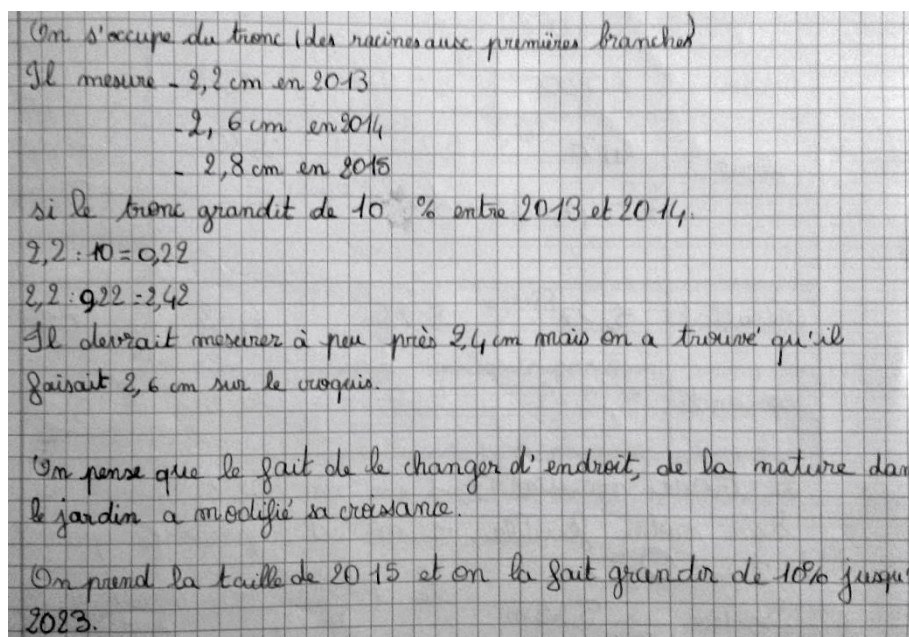 On s'occupe du tronc (des racines aux premières branches)
Il mesure - 2,2 cm en 2013
- 2, 6 cm en 2014
- 2,8 cm en 2015
si le tronc grandit de 10 % entre 2013 et 2014.
2,2 : 10 = 0,22
2,2 : 0,22 = 2,42
Il devrait mesurer à peu près 2,4 cm mais on a trouvé qu'il
faisait 2,6 cm sur le croquis.
On pense que le fait de le changer d'endroit, de la nature dan
le jardin a modifié sa croissance.
On prend la taille de 2015 et on la fait grandir de 10% jusqu'
2023.